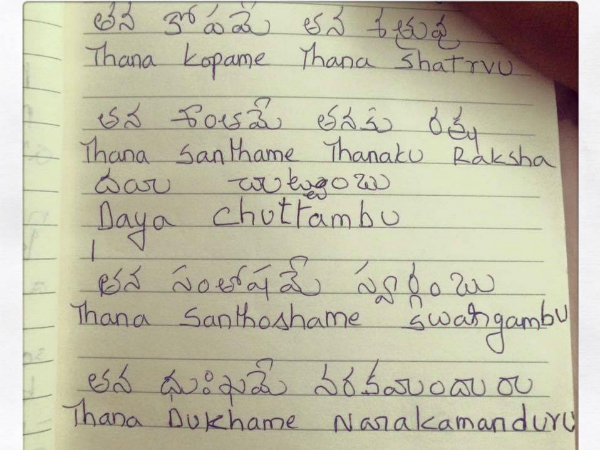 తన కోపమే తన శత్రువు
Thana kopame Thana Shatrvu
తన శాంతమే తనకు రక్ష
Thana Santhame Thanaku Raksha
దయ చుట్టంబు
Daya Chuttambu
తన సంతోషమే స్వర్గంబు
Thana Santhoshame Swargambu
తన దుఃఖమే నరకమందురు
Thana Dukhame Narakamanduru